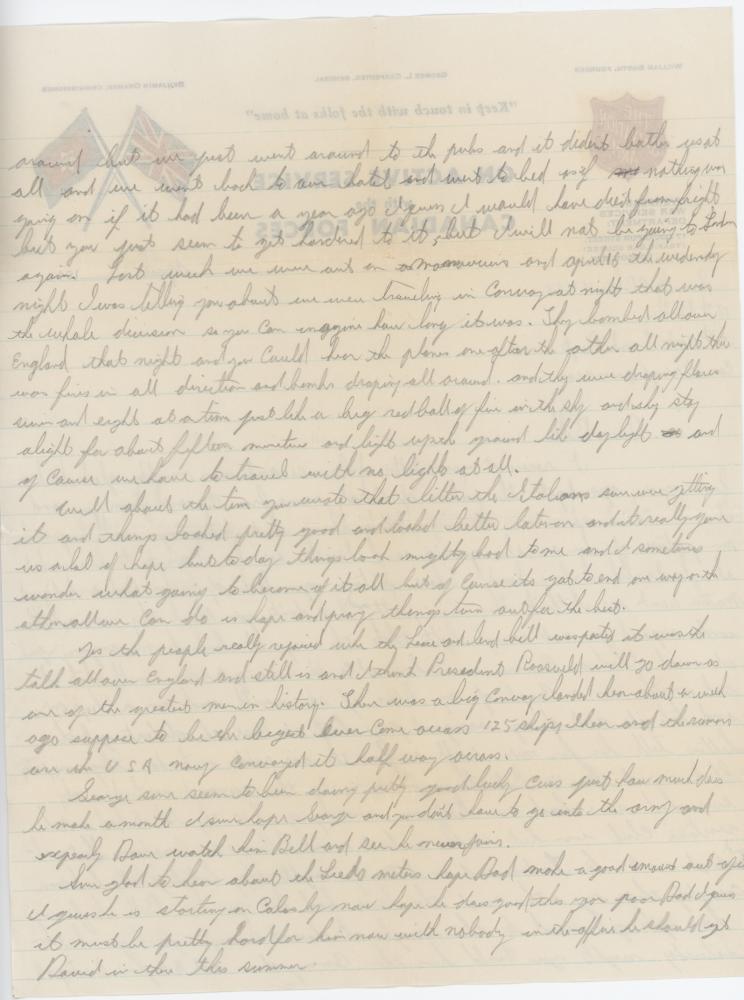 around but we just went around to the pubs and it didn't bother us at
all and we went back to our hotel and went to bed as if nothing was
going on if it had been a year ago I guess I would have died from fright
but you just seem to get hardened to it, but I will not be going to London
again. Last week we were out on manuvers and april 16 the wedensday
night I was telling you about we were traveling in Convoy at night that was
the whole division so you can imagine how long it was. They bombed all over
England that night and you could hear the planes one after the other all night there
was fires in all direction and bombs droping all around. and they were droping flares
seven and eight at a time just like a big red ball of fire in the sky and they stay
alight for about fifteen minutes and light up the ground like daylight and
of Course we have to travel with no lights at all.
Well about the time you wrote that letter the Italians sure were getting
it and things looked pretty good and looked better later on and it really gave
us a lot of hope but today things look mighty bad to me and I sometimes
wonder what going to become of it all but of Course its got to end one way or the
other all we can do is hope and pray things turn out for the best.
Yes the people really rejoiced when the lease and lend bill was passed it was the
talk all over England and still is and I think President Roosveld will go down as
one of the greatest men in history. There was a big Convoy landed here about a week
ago suppose to be the bigest ever Come across 125 ships I hear and the rumors
are the U S A navy convoyed it half way across.
George sure seem to been doing pretty good lucky Cuss just how much does
he make a month I sure hope George and you don't have to go into the army and
especaly Dave watch him Bell and see he never joins.
Sure glad to hear about the Leeds meters hope Dad make a good amount out of it
I guess he is starting on now hope he does good this year poor Dad I guess
it must be pretty hard for him now with nobody in the office he should get
David in there this summer.